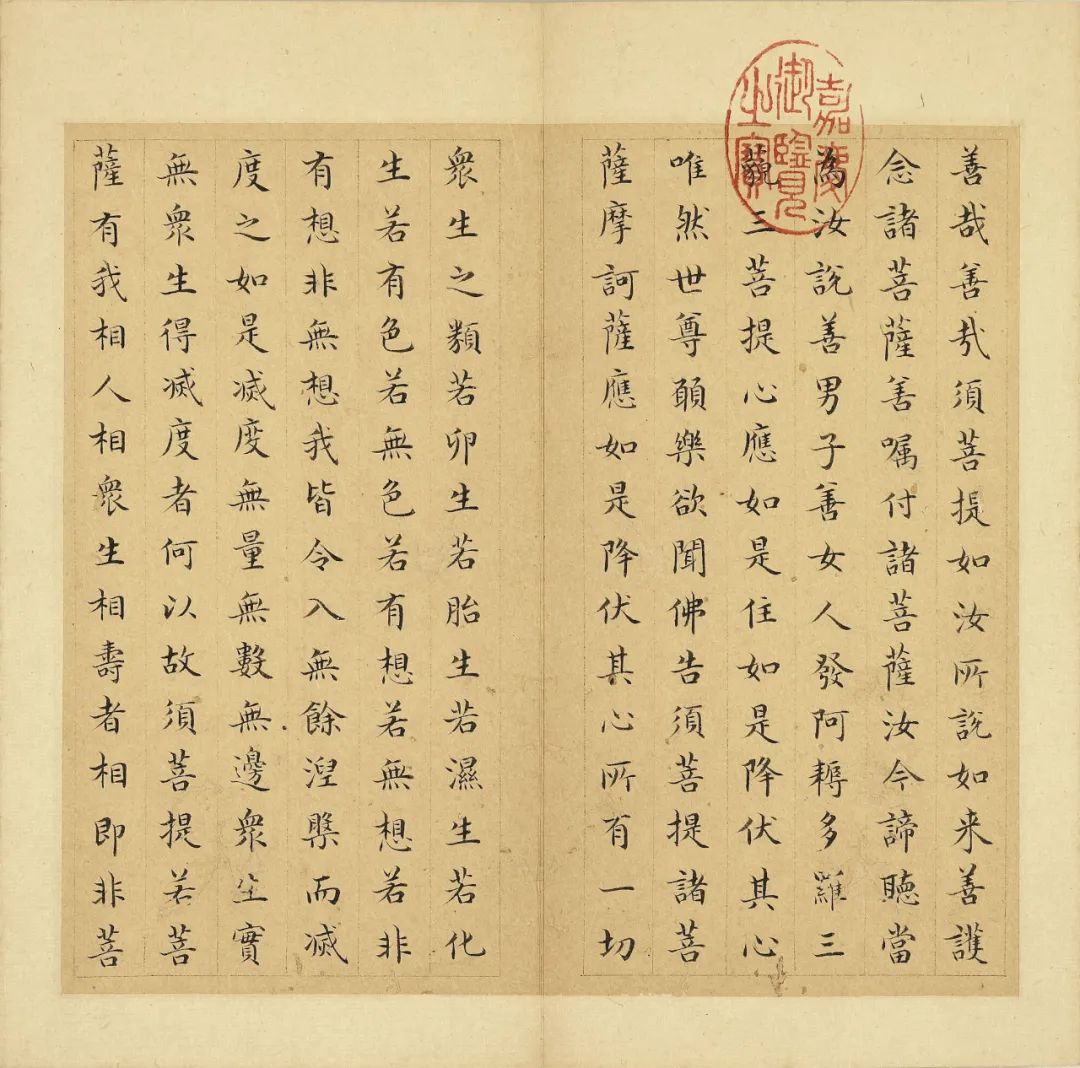 善哉善哉須菩提如汝所說如来善護
念諸菩薩善嘱付諸菩薩汝今諦聴當
為汝說善男子善女人發阿耨多羅三
藐三菩提心應如是住如是降伏其心
唯然世尊願樂欲聞佛告須菩提諸菩
薩摩訶薩應如是降伏其心所有一切
衆生之類若卵生若胎生若濕生若化
生若有色若無色若有想若無想若非
有想非無想我皆令入無餘涅槃而滅
度之如是滅度無量無數無邊衆生實
無衆生得滅度者何以故須菩提若菩
薩有我相人相衆生相壽者相即非菩
嘉慶
御覽
之寶